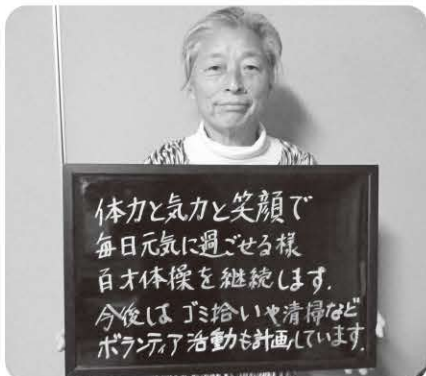 体力と気力と笑顔で
毎日元気に過ごせる様
百才体操を継続します.
今後は ゴミ拾いや清掃など
ボランティア活動も計画しています.